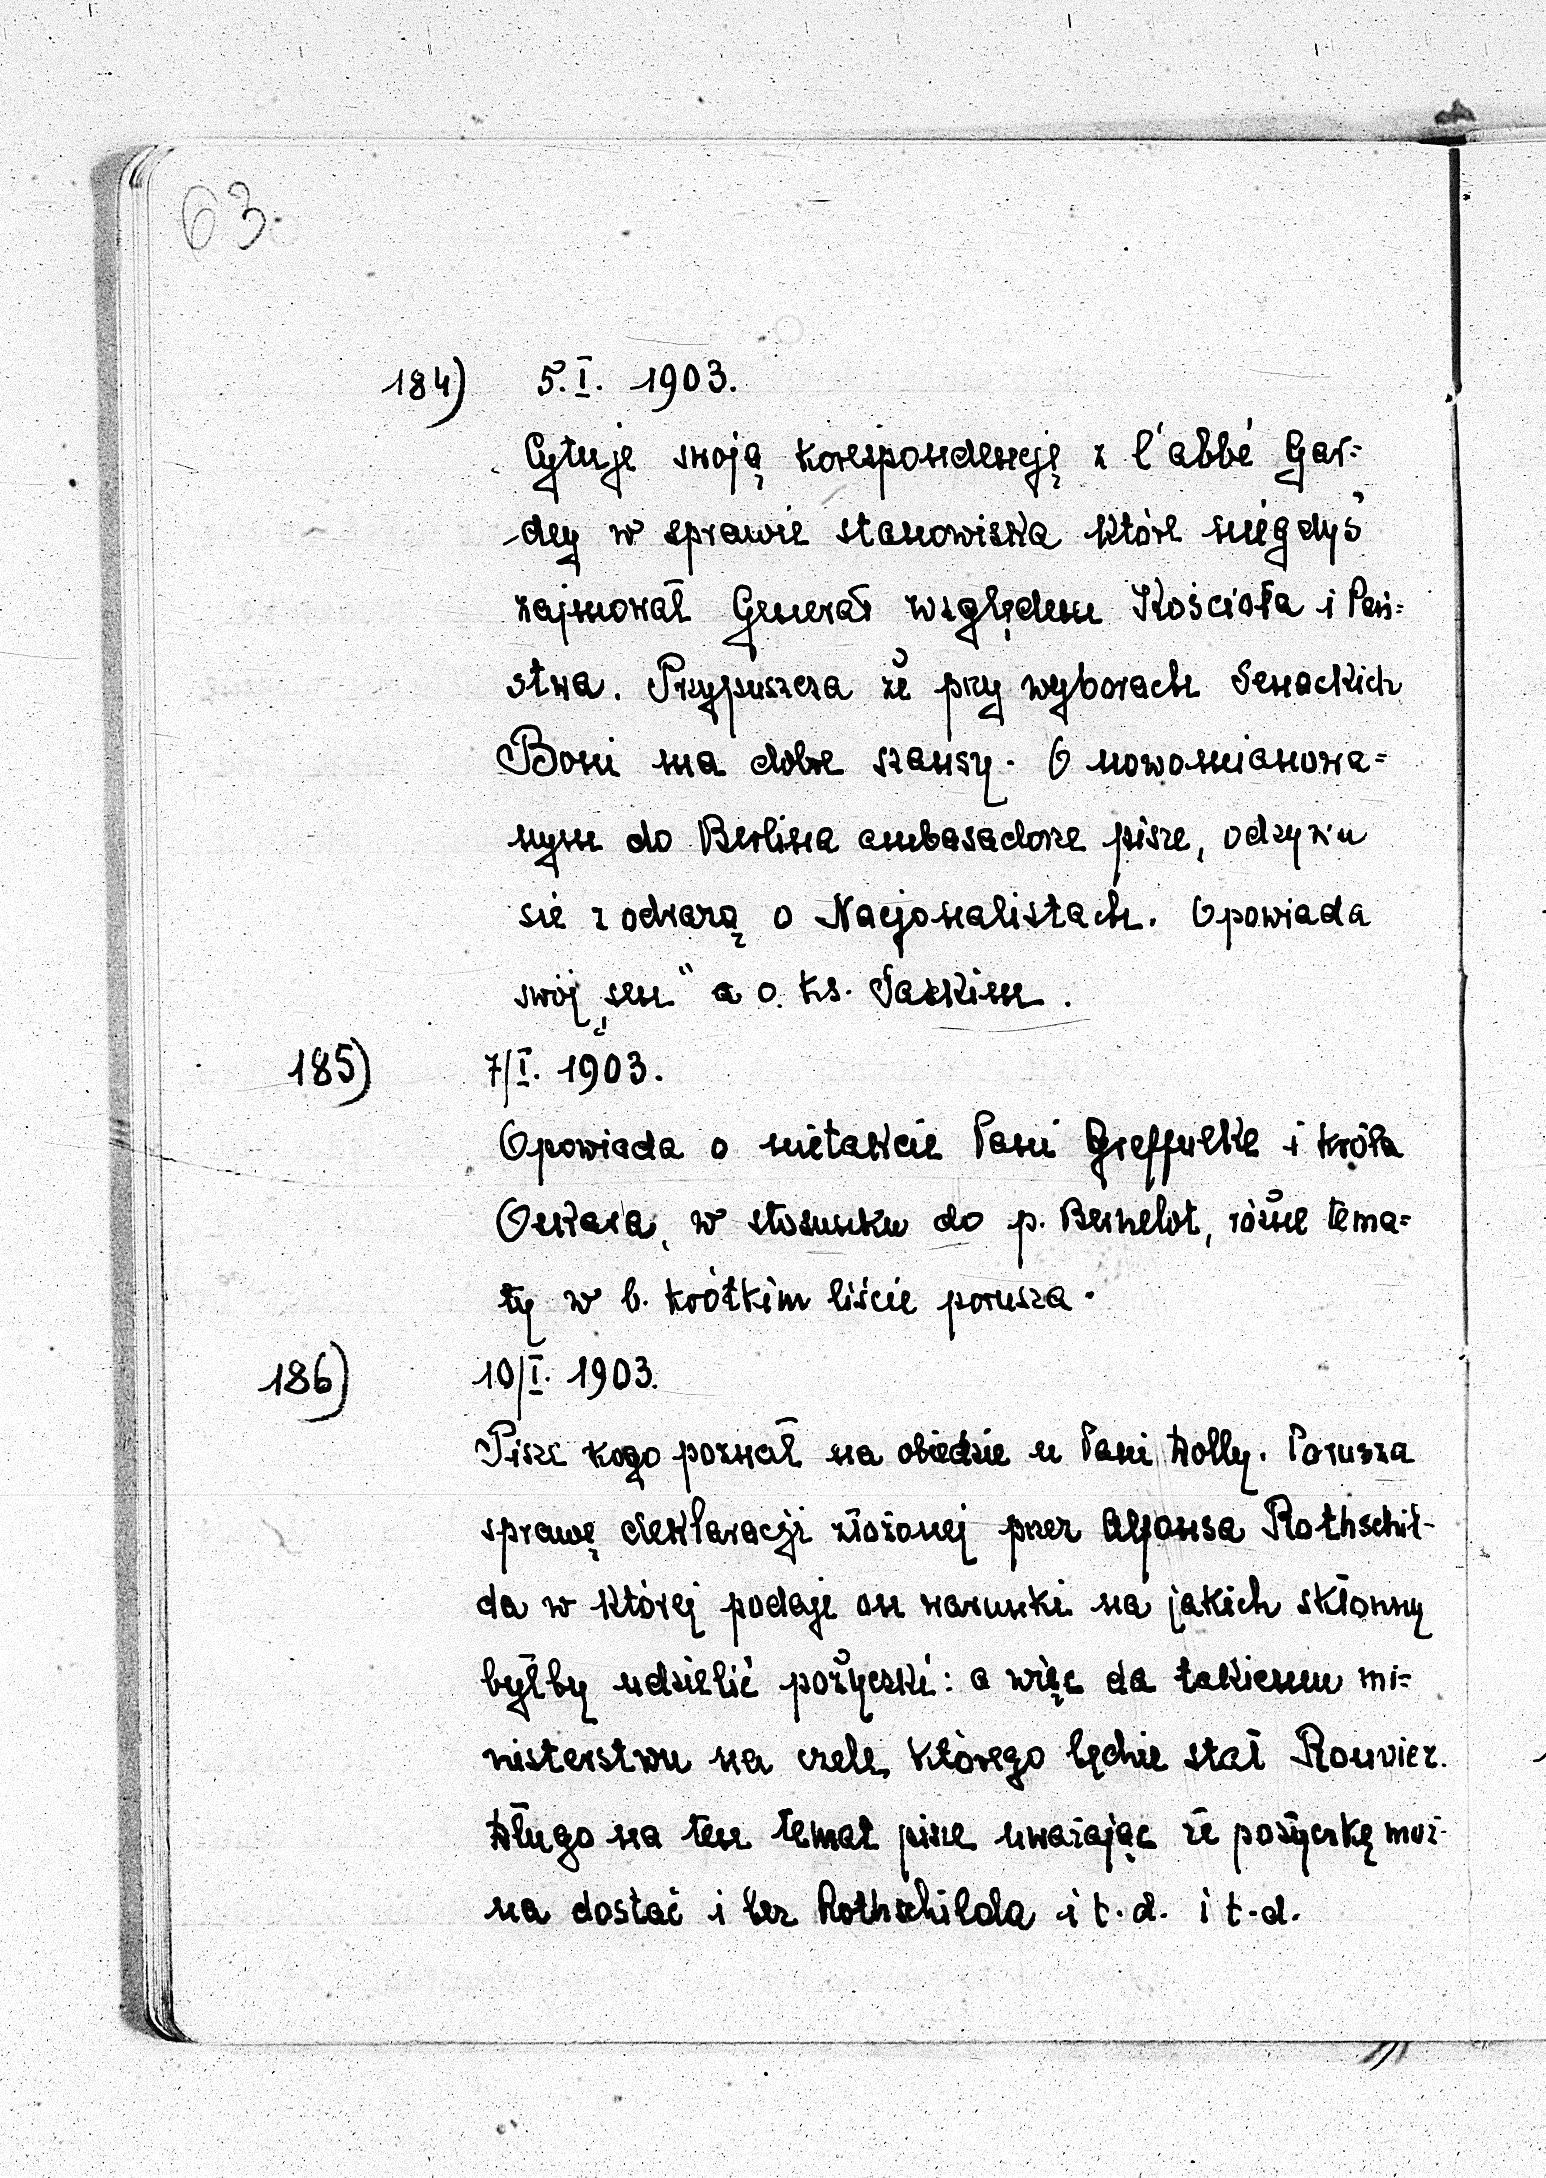 63
184) 5. I. 1903.
Cytuje swoją korespondencję z l'abbé Gar=
dey w sprawie stanowiska które niegdyś
zajmował Generał względem Kościoła i Pań=
stwa. Przypuszcza że przy wyborach Senackich
Boni ma dobre szansy. O nowomianowa=
nym do Berlina ambasadorze pisze, odzywa
sie z odrazą o Nacjonalistach. Opowiada
swój „sen" o ks. Jaskiem.
185) 7/I. 1903.
Opowiada o nietakcie Pani Greffulhe i króla
Oskara, w stosunku do p. Berthelot, różne tema=
ty w b. krótkim liście porusza.
186) 10/I. 1903.
Pisze kogo poznał na obiedzie u Pani Dolly. Porusza
sprawę deklaracji złożonej przez Alfonsa Rothschil-
da w której podaje on warunki na jakich skłonny
byłby udzielić pożyczki: a więc da takiemu mi=
nisterstwu na czele którego będzie stał Rouvier.
Długo na ten temat pisze uważając że pożyczkę moż-
na dostać i bez Rothschilda i t. d. i t. d.